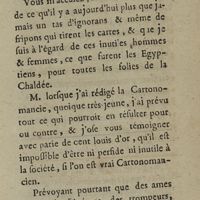 de ce qu'il y a aujourd'hui plus que ja-
mais un tas d'ignorans & même de
fripons qui tirent les cartes, & que je
suis à l'égard de ces inutiles hommes
& femmes, ce que furent les Egyp-
tiens, pour toutes les folies de la
Chaldée.
M. lorsque j'ai rédigé la Cartono-
mancie, quoique très-jeune, j'ai prévu
tout ce qui pourroit en résulter pour
ou contre, & j'ose vous témoigner
avec partie de cent louis d'or, qu'il est
impossible d'être ni perfide ni inutile à
la société, si l'on est vrai Cartonoman-
cien.
Prévoyant pourtant que des ames
trompeurs,